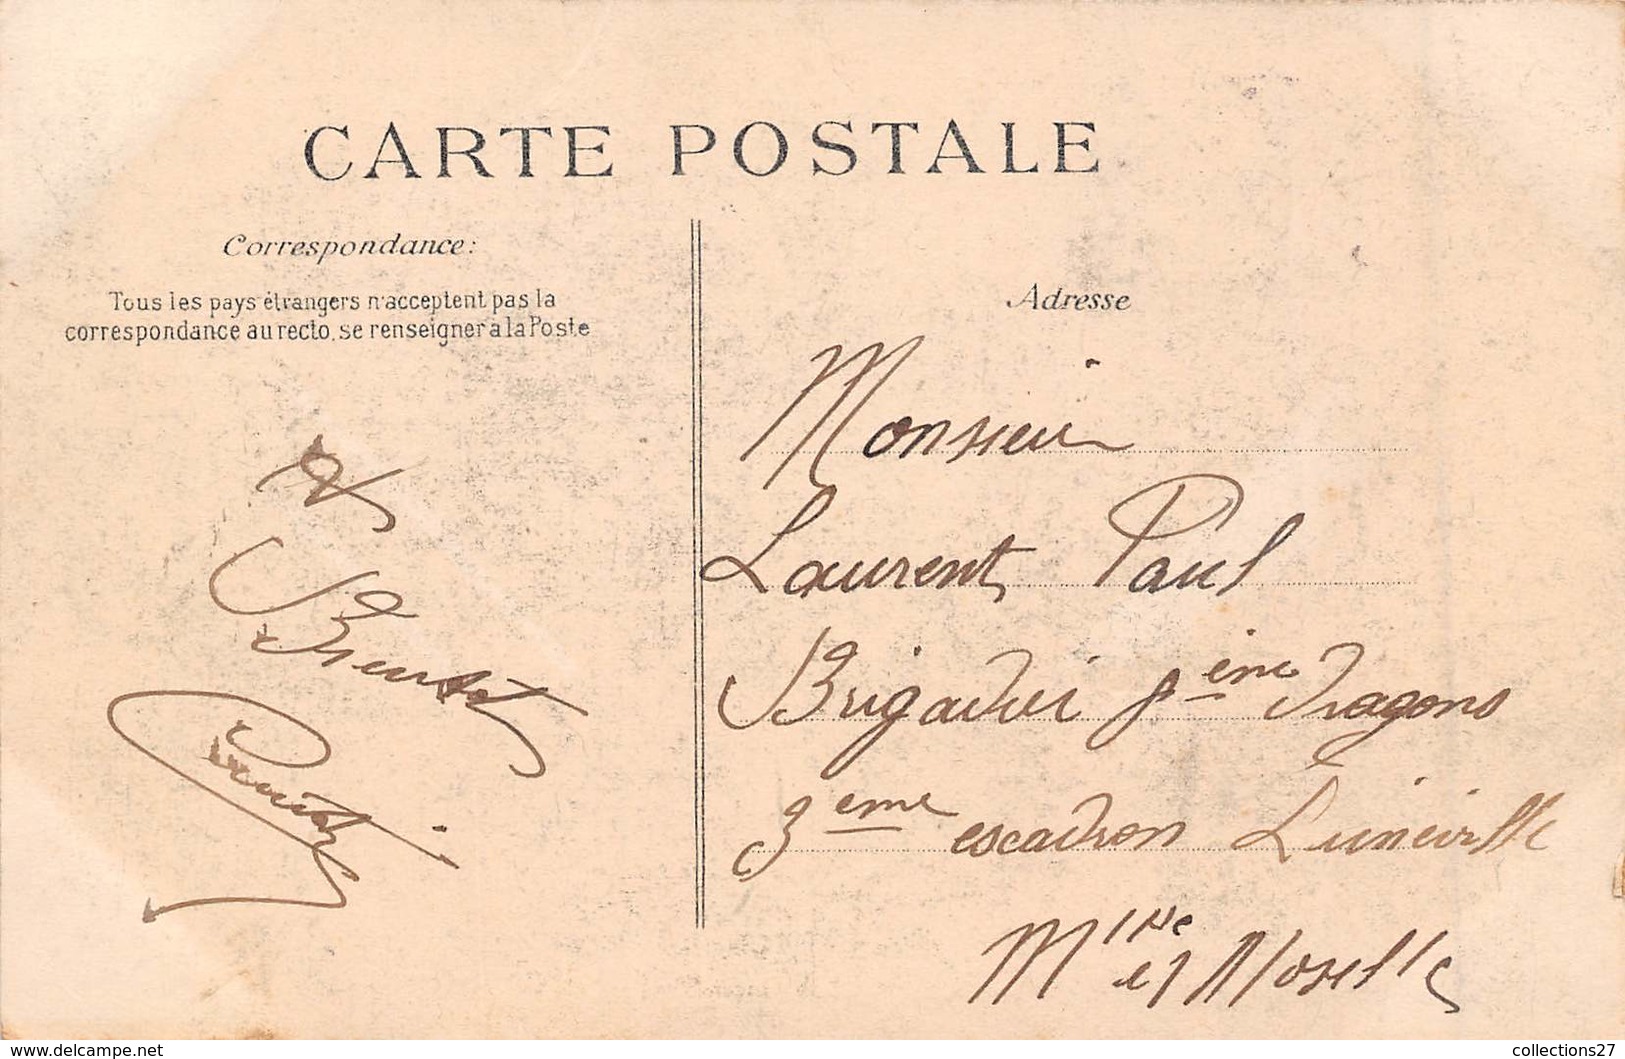 CARTE POSTALE
Correspondance:
Tous les pays étrangers n'acceptent pas la
correspondance au recto, se renseigner à la Poste
A
Bientôt
Adresse
Monsieur
Laurent Paul
Brigadier 8ème Dragons
3ème escadron Lunéville
Mthe et Moselle
www.delcampe.net
collections27